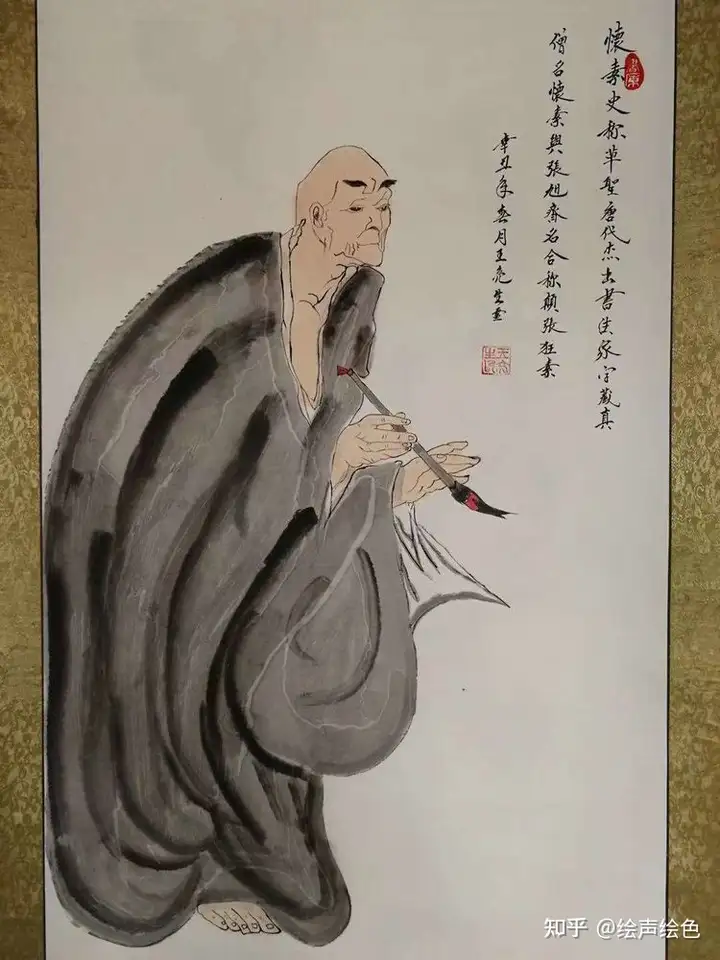 懷素史称草聖唐代杰出書法家字藏真
僧名懷素與張旭齊名合称顛张狂素
辛丑年春月王亮生画
知乎 @绘声绘色